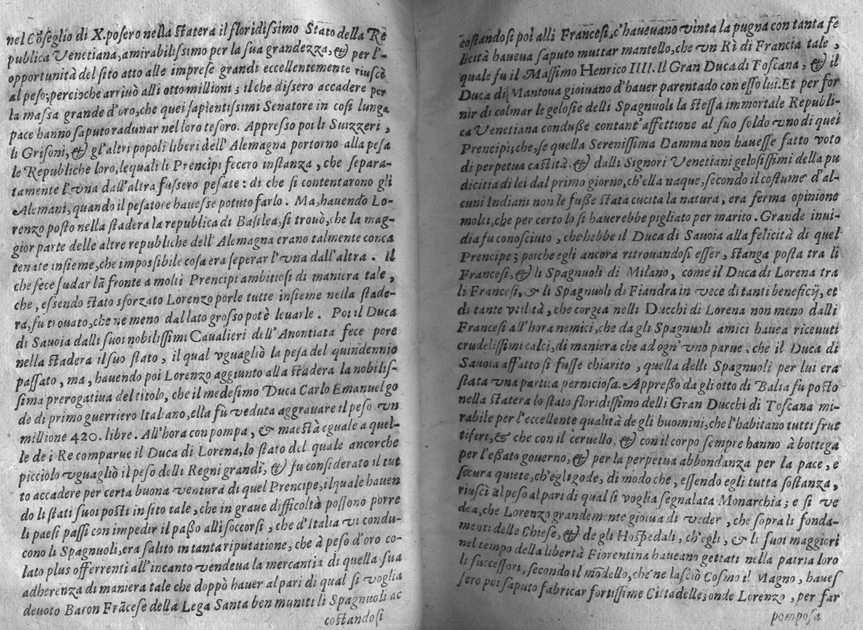 nel Cõseglio di X. posero nella statera il floridissimo Stato della Re
publica Venetiana, amirabilissimo per la sua grandezza, & per l'-
opportunità del sito atto alle imprese grandi eccellentemente riuscò
al peso; percioche arriuò alli otto millioni; il che dissero accadere per
la massa grande d'oro, che quei sapientissimi Senatore in così lunga
pace hanno saputo radunar nel loro tesoro. Appresso poi li Suizzeri,
li Grisoni, & gl'altri popoli liberi dell'Alemagna portorno alla pesa
le Republiche loro, lequali li Prencipi fecero instanza, che separa-
tamente l'vna dall'altra fussero pesate: di che si contentarono gli
Alemani, quando il pesatore hauesse potuto farlo. Ma, hauendo Lo-
renzo posto nella stadera la republica di Basilea, si trouò, che la mag-
gior parte delle altre republiche dell'Alemagna erano talmente conca
tenate insieme, che impossibile cosa era seperar l'vna dall'altra. Il
che fece sudar la fronte a molti Prencipi ambitiosi di maniera tale,
che, essendo stato sforzato Lorenzo porle tutte insieme nella stade-
ra, fu tiouato, che ne meno dal lato grosso potè leuarle. Poi il Duca
di Sauoia dalli suoi nobilissimi Caualieri dell'Anontiata fece pore
nella stadera il suo stato, il qual vguagliò la pesa del quindennio
passato, ma, hauendo poi Lorenzo aggiunto alla stadera la nobilis-
sima prerogatiua del titolo, che il medesimo Duca Carlo Emanuel go
de di primo guerriero Italiano, ella fù veduta aggrauare il peso vn
millione 420. libre. All'hora con pompa, & maestà eguale a quel-
le de i Re comparue il Duca di Lorena, lo stato del quale ancorche
picciolo vguagliò il peso delli Regni grandi, & fu considerato il tut
to accadere per certa buona ventura di quel Prencipe; il quale hauen
do li stati suoi posti in sito tale, che in graue difficoltà possono porre
li paesi passi con impedir il passo alli soccorsi, che d'Italia vi condu-
cono li Spagnuoli, era salito in tanta riputatione, che à peso d'oro co-
lato plus offerenti all'incanto vendeua la mercantia di quella sua
adherenza di maniera tale che doppò hauer al pari di qual si voglia
deuoto Baron Frãcese della Lega Santa ben muniti li Spagnuoli ac
costandosi
costandosi poi alli Francesi, c'haueuano vinta la pugna con tanta fe
licità haueua saputo muttar mantello, che vn Rè di Francia tale,
quale fu il Massimo Henrico IIII. Il Gran Duca di Toscana, & il
Duca di Mantoua gioiuano d'hauer parentado con esso lui. Et per for
nir di colmar le gelosie delli Spagnuoli la stessa immortale Republi-
ca Venetiana condusse contant'affettione al suo soldo vno di quei
Prencipi; che, se quella Serenissima Damma non hauesse fatto voto
di perpetua castità & dalli Signori Venetiani gelosissimi della pu
dicitia di lei dal primo giorno, ch'ella naque, secondo il costume d'al-
cuni Indiani non le fusse stata cucita la natura, era ferma opinione
molti, che per certo lo si hauerebbe pigliato per marito. Grande inui-
dia fu conosciuto, che hebbe il Duca di Sauoia alla felicità di quel
Prencipe; poiche egli ancora ritrouandosi esser, stanga posta tra li
Francesi, & li Spagnuoli di Milano, come il Duca di Lorena tra
li Francesi, & li Spagnuoli di Fiandra in vece di tanti beneficij, et
di tante vtilità, che corgea nelli Ducchi di Lorena non meno dalli
Francesi all'hora nemici, che da gli Spagnuoli amici hauea riceuuti
crudelissimi calci, di maniera che ad ogn'vno parue. che il Duca di
Sauoia affatto si fusse chiarito, quella delli Spagnuoli per lui era
stata vna partica perniciosa. Appresso da gli otto di Balia fu posto
nella statera lo stato floridissimo delli Gran Ducchi di Toscana mi-
rabile per l'eccellente qualità de gli huomini, che l'habitano tutti frut
tiferi, & che con il ceruello, & con il corpo sempre hanno à bottega
per l'essato gouerno, & per la perpetua abbondanza per la pace, e
secura quiete, ch'egli gode, di modo che, essendo egli tutta sostanza,
riuscì al peso al pari di qual si voglia segnalata Monarchia; e si ve
dea, che Lorenzo grandemente gioiua di veder, che sopra li fonda-
menti delle Chiese, & de gli Hospedali, ch'egli, & li suoi maggiori
nel tempo della libertà Fiorentina haueano gettati nella patria loro
li successori, secondo il modello, che ne lasciò Cosmo il Magno, haues
sero poi saputo fabricar fortissime Cittadelle; onde Lorenzo, per far
pomposa